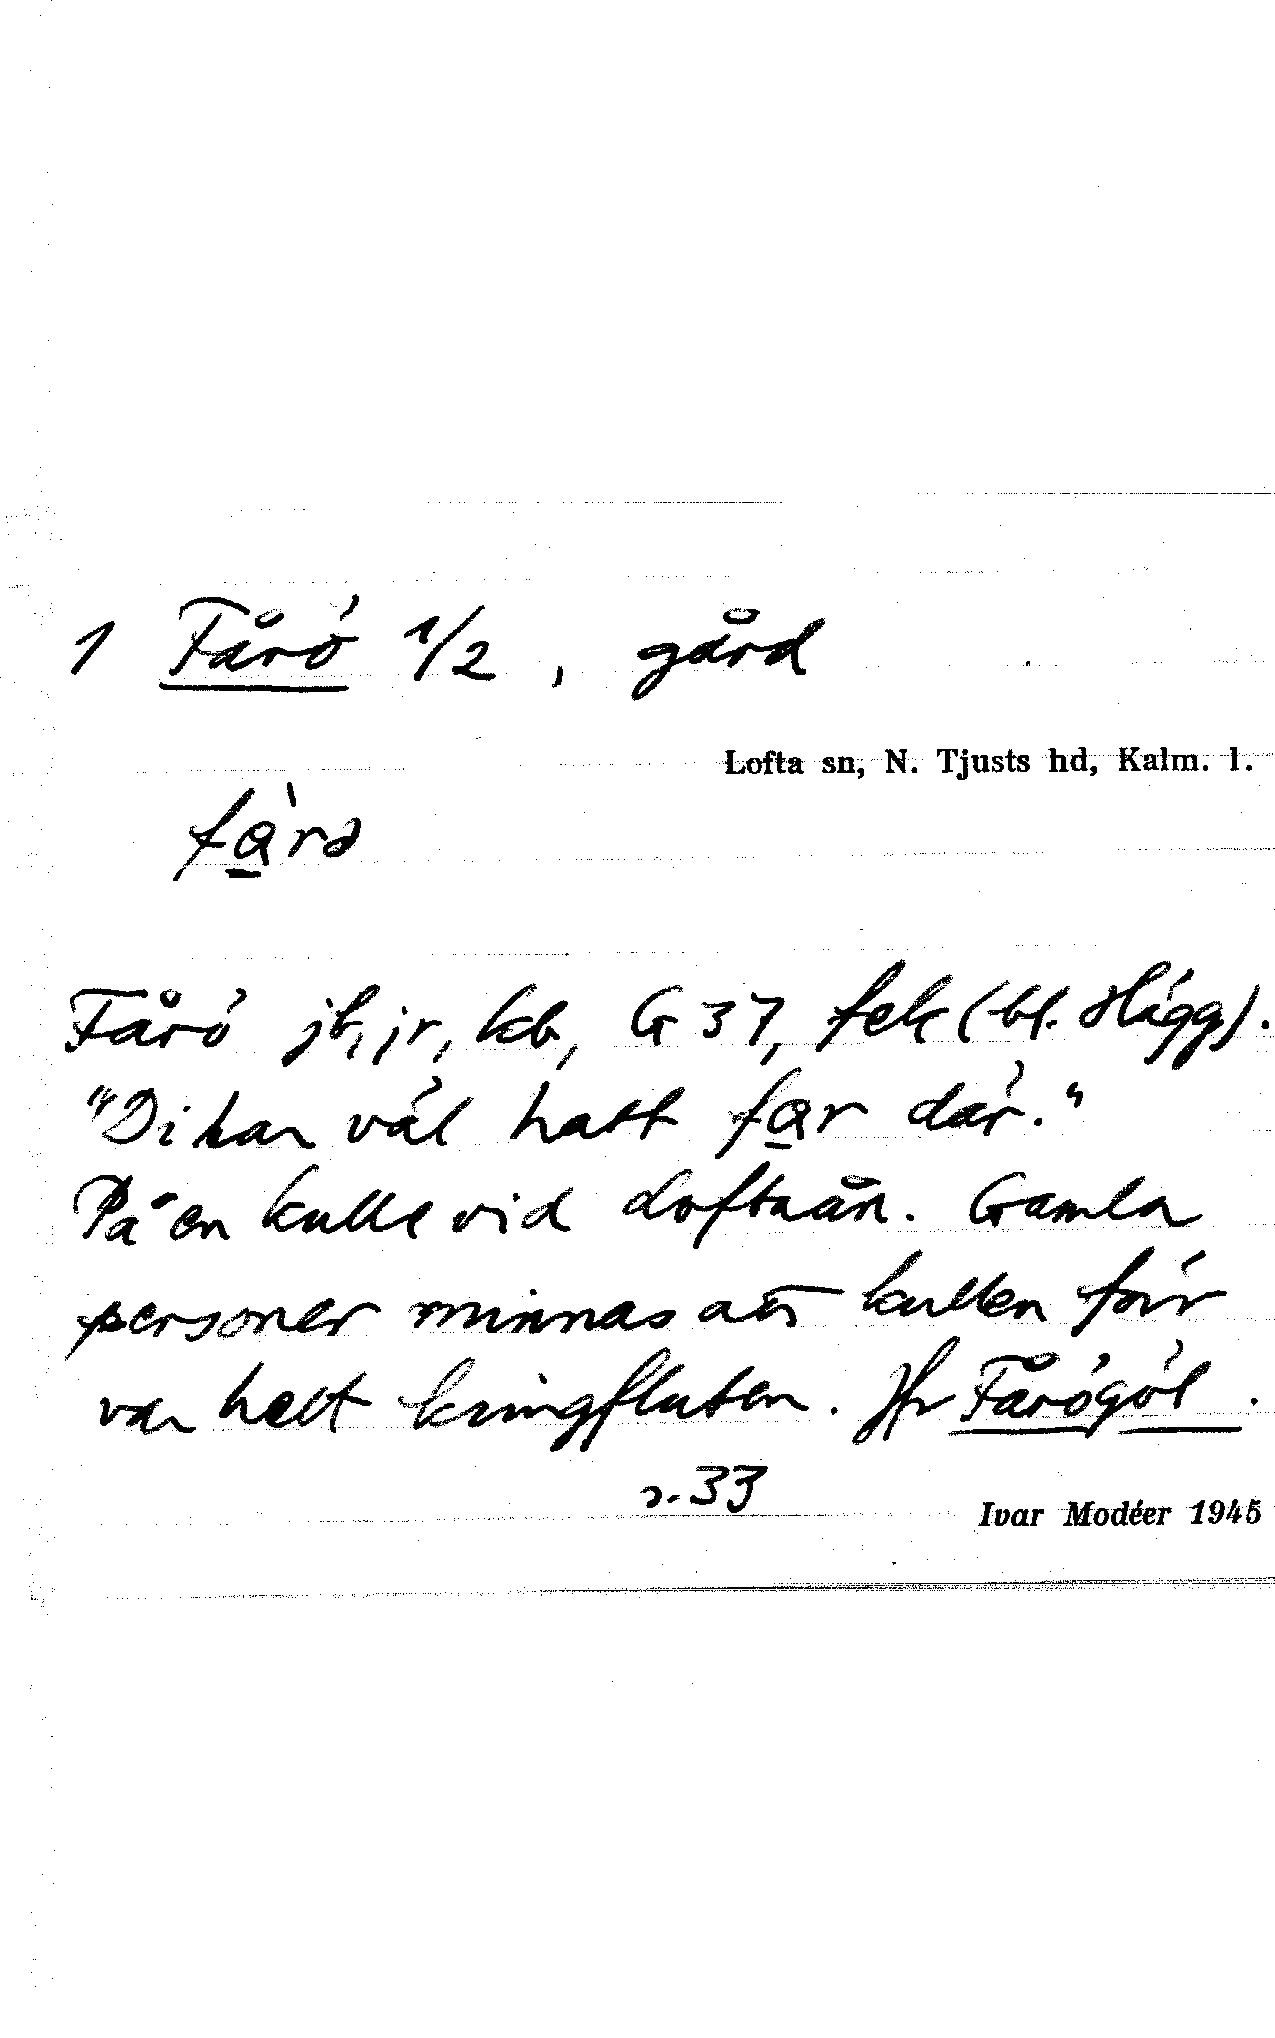 1 Fårö 1/2, gård
Lofta sn, N. Tjusts hd, Kalm. l.
fàrə
Fårö jb, jr, kb, G 37, fek (bl. Hägg).
"Di har väl hatt far där."
På en kulle vid Loftaån. Gamla
personer minnas att kullen förr
var helt kringfluten. Jfr Fårögöl.
s. 33
Ivar Modéer 1945